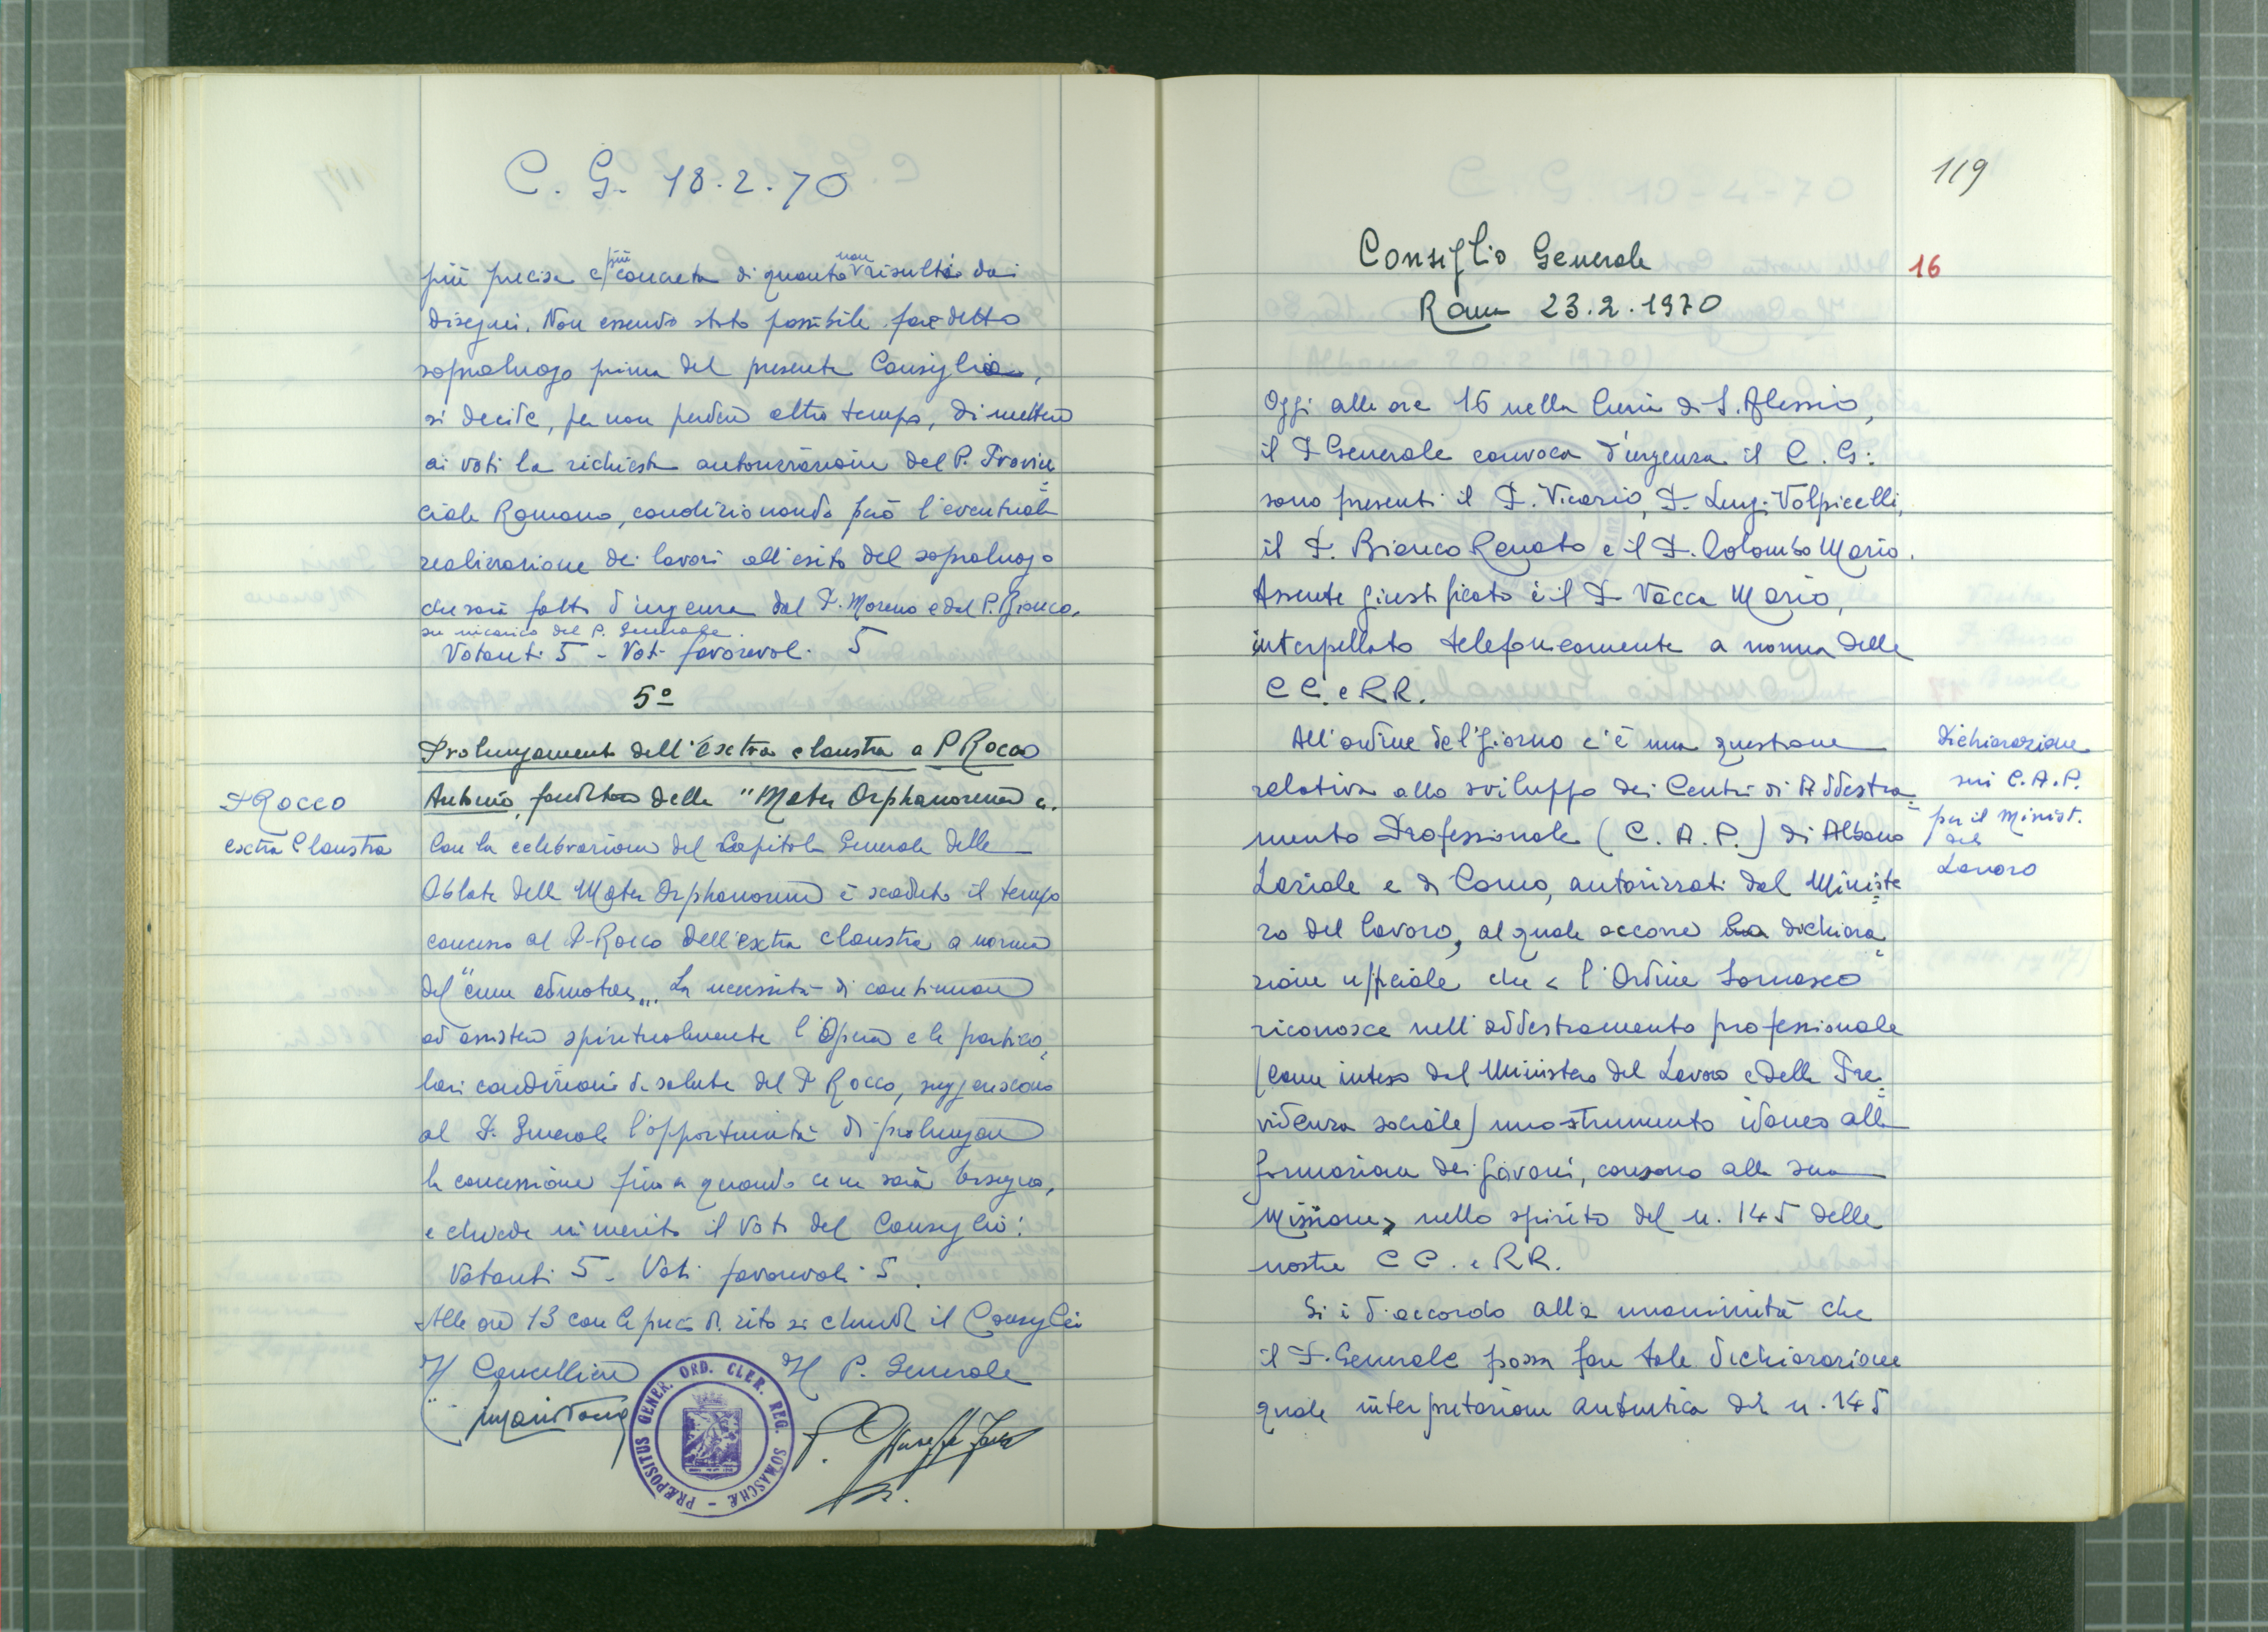 C. G. 18.2.70
più precisa e più concreta di quanto non risulti dai
disegni. Non essendo stato possibile fare detto
sopraluogo prima del presente Consiglio,
si decide, per non perdere altro tempo, di mettere
ai voti la richiesta autorizzazione del P. Provin=
ciale Romano, condizionando però l'eventuale
realizzazione dei lavori all'esito del sopraluogo
che sarà fatto d'urgenza dal P. Moreno e dal P. Bianco,
su incarico del P. Generale.
Votanti 5 - Voti favorevoli 5
5º
Prolungamento dell'extra claustra a P Rocco
Antonio, fondatore delle "Mater Orphanorum".
P Rocco
extra Claustra
Con la celebrazione del Capitolo Generale delle
Oblate della Mater Orphanorum è scaduto il tempo
concesso al P. Rocco dell'extra claustra a norma
del "Cum admotae". La necessità di continuare
ad assistere spiritualmente l'Opera e le partico=
lari condizioni di salute del P Rocco, suggeriscono
al P. Generale l'opportunità di prolungare
la concessione fino a quando ce ne sarà bisogno,
e chiede in merito il voto del Consiglio:
Votanti 5 - Voti favorevoli 5.
Alle ore 13 con le preci di rito si chiude il Consiglio
Il Cancelliere Il P. Generale
P. Giuseppe
PRÆPOSITUS GENER. ORD. CLER. REG. SOMASCHÆ
119
16
Consiglio Generale
Roma 23.2.1970
Oggi alle ore 16 nella Curia di S. Alessio,
il P Generale convoca d'urgenza il C. G:
sono presenti il P. Vicario, P. Luigi Volpicelli,
il P. Bianco Renato e il P. Colombo Mario.
Assente giustificato è il P. Vacca Mario,
interpellato telefonicamente a norma delle
CC. e RR.
All'ordine del giorno c'è una questione
relativa allo sviluppo dei Centri di Addestra=
mento Professionale (C. A. P.) di Albano
Laziale e di Como, autorizzati dal Ministe=
ro del Lavoro, al quale occorre la dichiara=
zione ufficiale che < l'Ordine Somasco
riconosce nell'addestramento professionale
(come inteso dal Ministero del Lavoro e della Pre=
videnza sociale) uno strumento idoneo alla
formazione dei giovani, consono alla sua
Missione > nello spirito del n. 145 delle
nostre CC. e RR.
Dichiarazione
sui C.A.P.
per il Minist.
del
Lavoro
Si è d'accordo alla unanimità che
il P. Generale possa fare tale dichiarazione
quale interpretazione autentica del n. 145